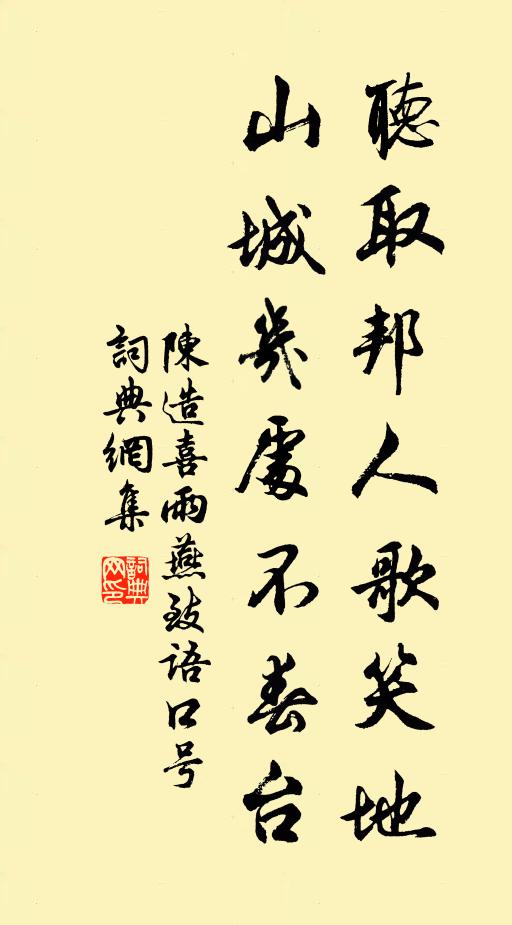 聽取邦人歌笑地
山城幾處不春台
陳造喜雨燕致語口号
詞典網集
詞典網印